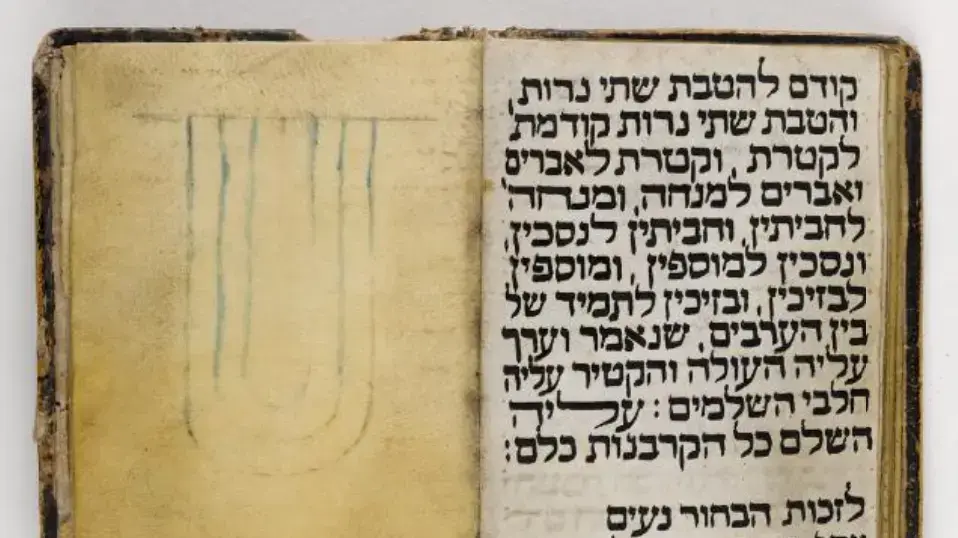 קודם להטבת שתי נרות,
והטבת שתי נרות קודמת
לקטרת, וקטרת לאברים
ואברים למנחה, ומנחה
לחביתין, וחביתין לנסכין,
ונסכין למוספין, ומוספין
לבזיכין, ובזיכין לתמיד של
בין הערבים, שנאמר וערך
עליה העולה והקטיר עליה
חלבי השלמים: עליה
השלם כל הקרבנות כלם:
לזכות הבחור נעים